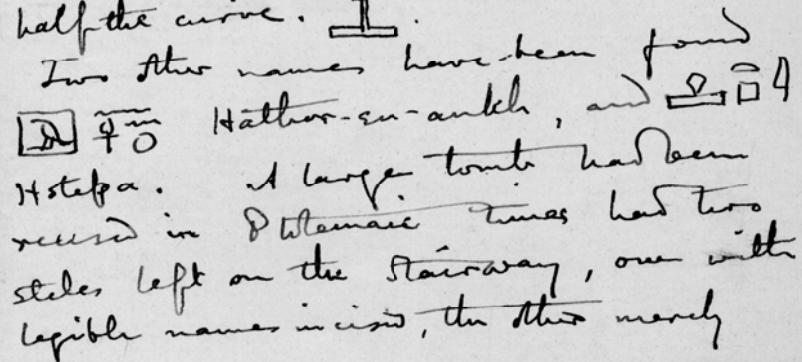 half the curve.
Two other names have been found
Hathor-en-ankh, and
Hotepa. A large tomb had been
reused in Ptolemaic times had two
steles left on the stairway, one with
legible names incised, the other merely